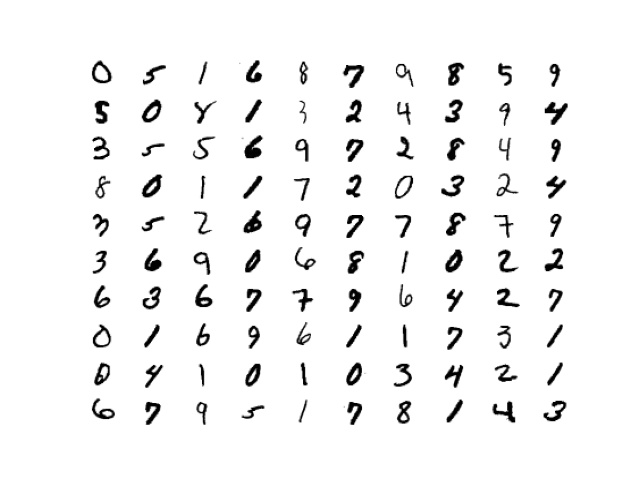 0 5 1 6 8 7 9 8 5 9
5 0 8 1 3 2 4 3 9 4
3 5 5 6 9 7 2 8 4 9
8 0 1 1 7 2 0 3 2 4
3 5 2 6 9 7 7 8 7 9
3 6 9 0 6 8 1 0 2 2
6 3 6 7 7 9 6 4 2 7
0 1 6 9 6 1 1 7 3 1
0 4 1 0 1 0 3 4 2 1
6 7 9 5 1 7 8 1 4 3